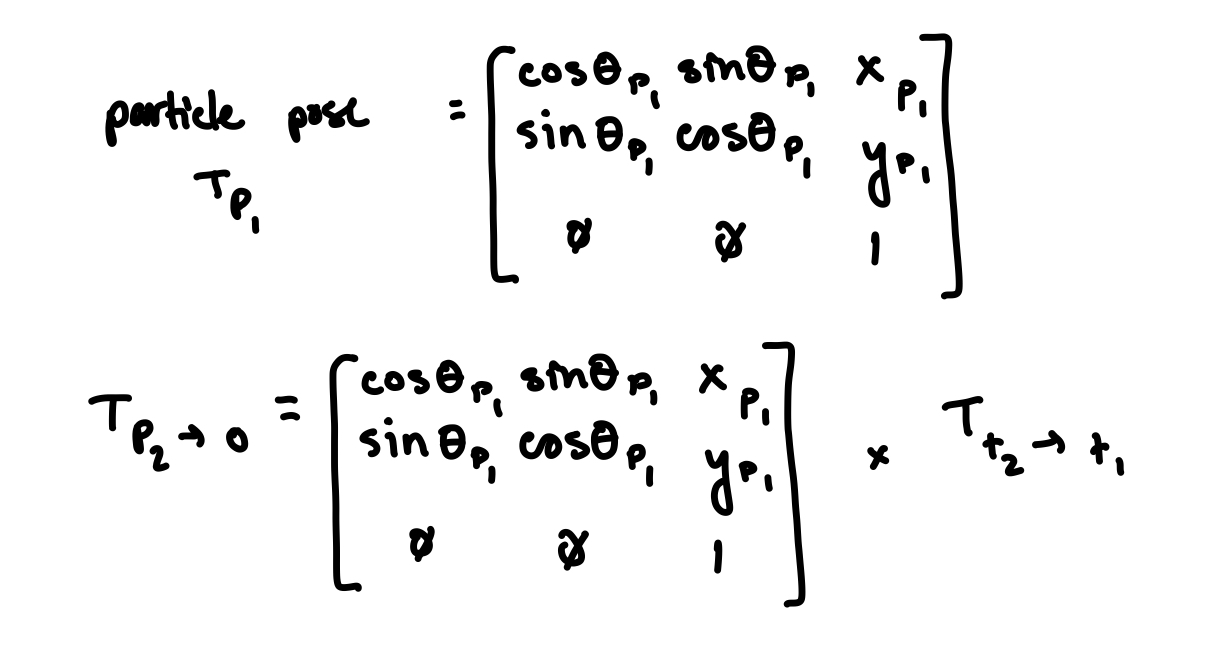 particle pose = [ cosθ_{P_1} sinθ_{P_1} x_{P_1}
T_{P_1} sinθ_{P_1} cosθ_{P_1} y_{P_1}
0 0 1 ]
T_{P_2 → 0} = [ cosθ_{P_1} sinθ_{P_1} x_{P_1}
sinθ_{P_1} cosθ_{P_1} y_{P_1}
0 0 1 ] × T_{t_2 → t_1}